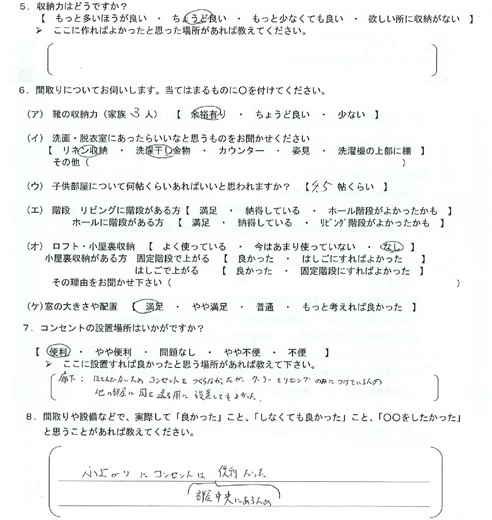 5．収納力はどうですか？
【 もっと多いほうが良い ・ ちょうど良い ・ もっと少なくても良い ・ 欲しい所に収納がない 】
➢ ここに作ればよかったと思った場所があれば教えてください。
6．間取りについてお伺いします。当てはまるものに○を付けてください。
（ア） 靴の収納力（家族 3 人） 【 余裕有り ・ ちょうど良い ・ 少ない 】
（イ） 洗面・脱衣室にあったらいいなと思うものをお聞かせください
【 リネン収納 ・ 洗濯干し金物 ・ カウンター ・ 姿見 ・ 洗濯機の上部に棚 】
その他（ ）
（ウ） 子供部屋について何帖くらいあればいいと思われますか？ 【 4.5 帖くらい 】
（エ） 階段 リビングに階段がある方 【 満足 ・ 納得している ・ ホール階段がよかったかも 】
ホールに階段がある方 【 満足 ・ 納得している ・ リビング階段がよかったかも 】
（オ） ロフト・小屋裏収納 【 よく使っている ・ 今はあまり使っていない ・ なし 】
小屋裏収納がある方 固定階段で上がる 【 良かった ・ はしごにすればよかった 】
はしごで上がる 【 良かった ・ 固定階段にすればよかった 】
その理由をお聞かせ下さい（ ）
（ケ）窓の大きさや配置 【 満足 ・ やや満足 ・ 普通 ・ もっと考えれば良かった 】
7．コンセントの設置場所はいかがですか？
【 便利 ・ やや便利 ・ 問題なし ・ やや不便 ・ 不便 】
➢ ここに設置すれば良かったと思う場所があれば教えて下さい。
廊下： コンセントを クーラー を リビング のみに つけているため
他の部屋に 風を送る用に 設置してもよかった。
8．間取りや設備などで、実際して「良かった」こと、「しなくても良かった」こと、「○○をしたかった」
と思うことがあれば教えてください。
小上がりに コンセントは 便利だった
部屋中央にあるため